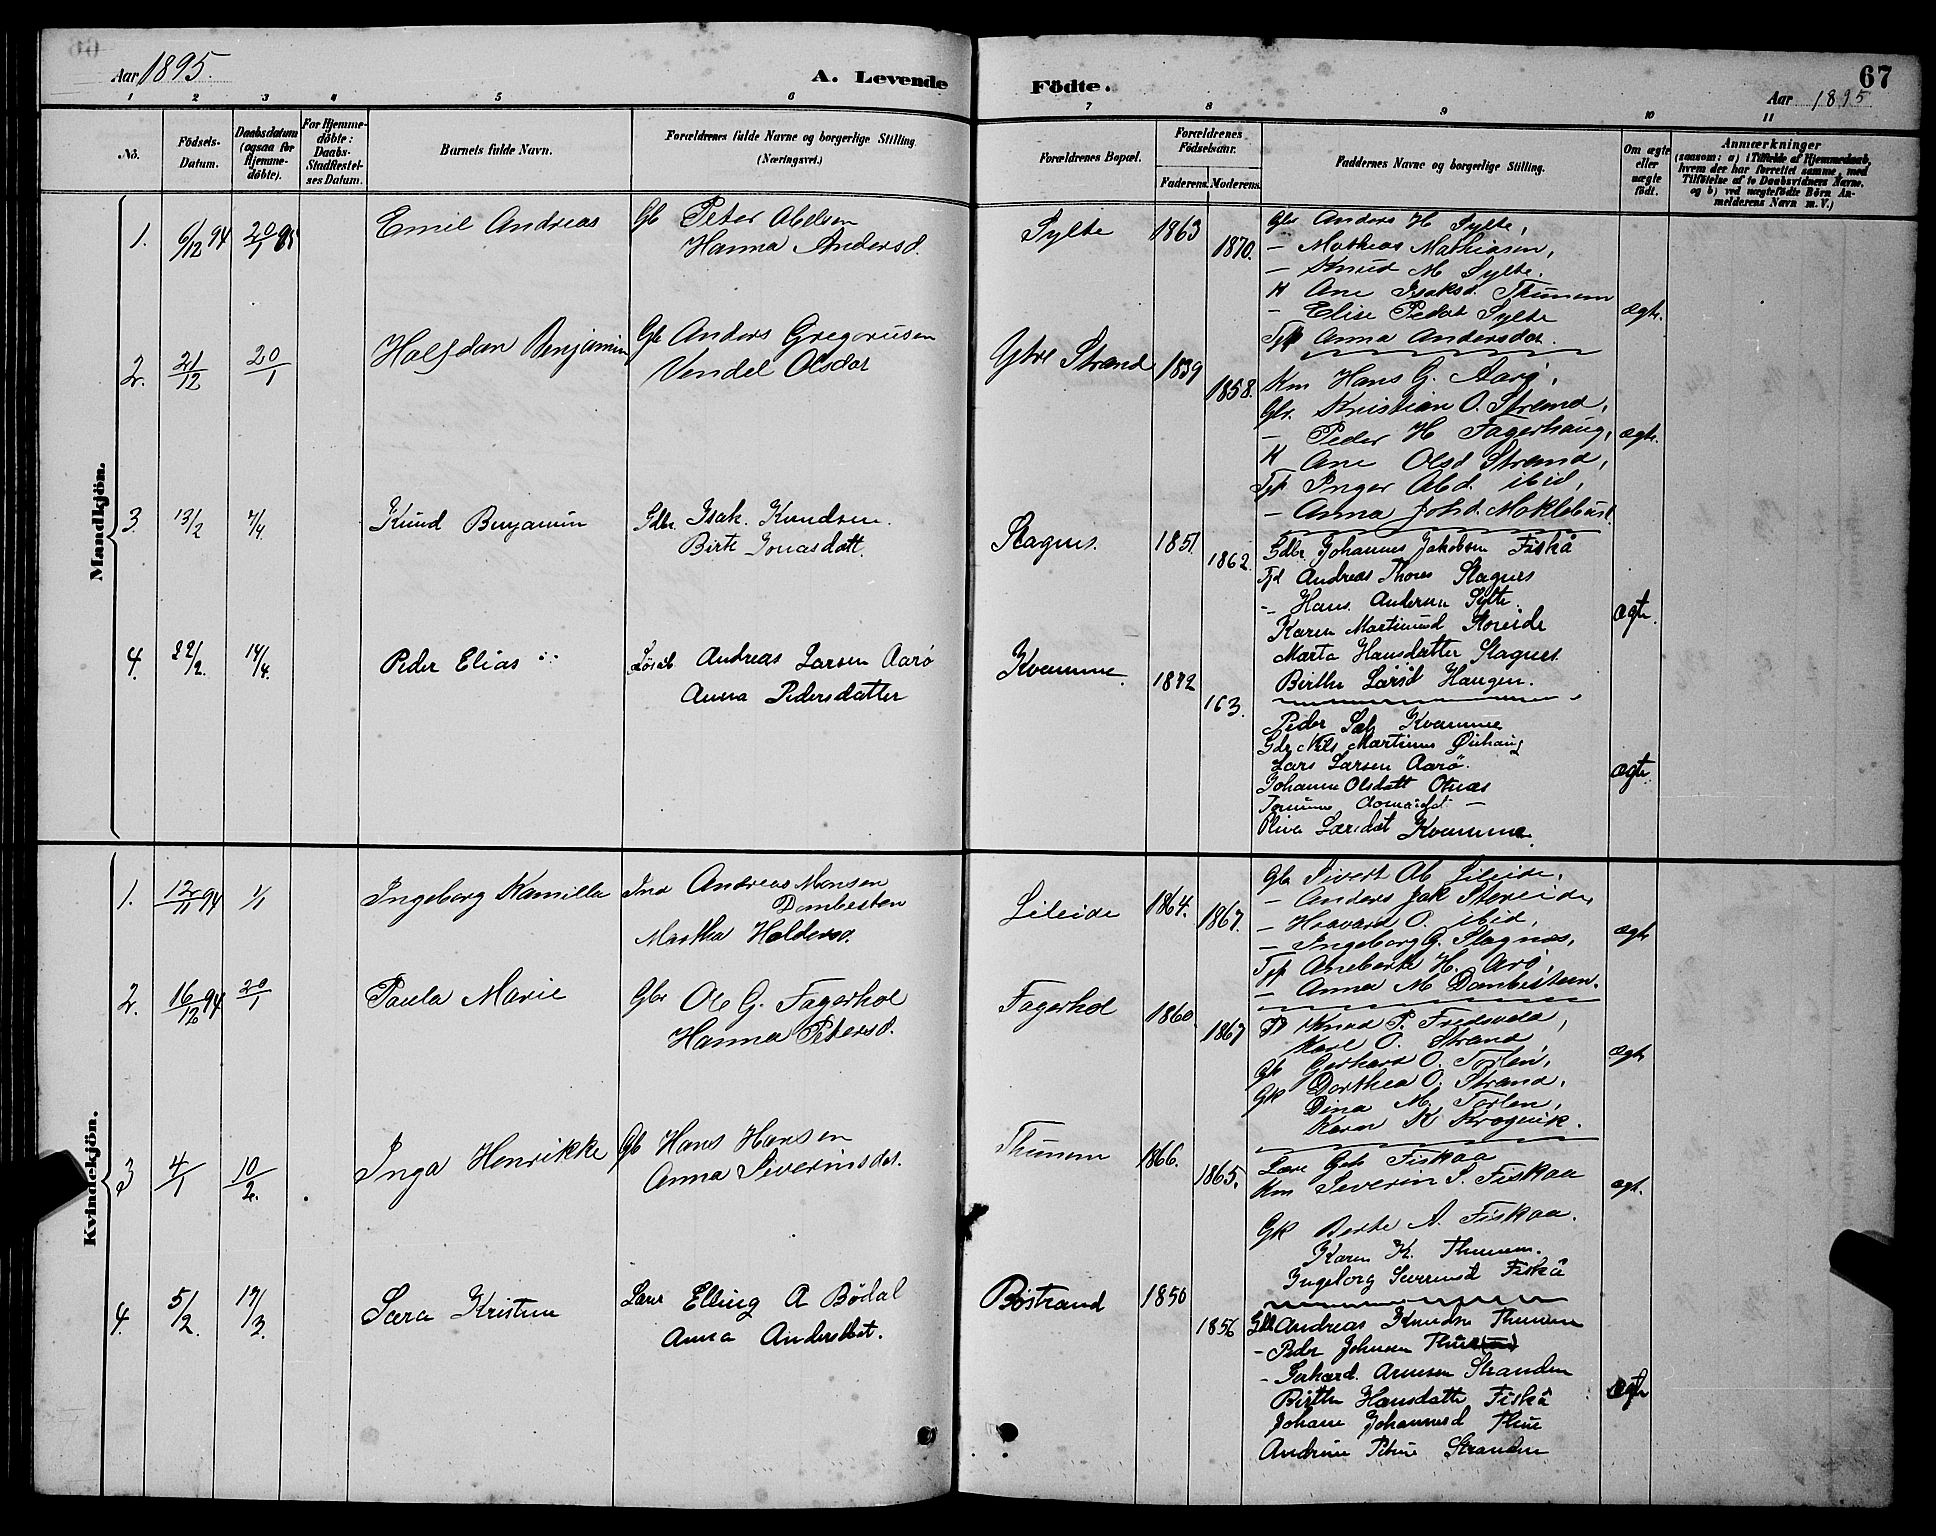 Aar 1895.
A. Levende
Födte.
67
Aar 1895
1 2 3 4 5 6 7 8 9 10 11
No.
Födsels-Datum.
Daabsdatum (ogsaa for Hjemme-döbte).
For Hjemme-döbte: Daabs-Stadfæstel-ses Datum.
Barnets fulde Navn.
Forældrenes fulde Navne og borgerlige Stilling.
(Næringsvei.)
Forældrenes Bopæl.
Forældrenes Födselsaar.
Faderens. Moderens.
Faddernes Navne og borgerlige Stilling.
Om ægte eller uægte födt.
Anmærkninger
(saasom: a) i Tilfælde af Hjemmedaab,
hvem der har forrettet samme, med
Tilföielse af to Daabsvidners Navne,
og b) ved uægtefödte Börn An-
melderens Navn m. V.)
Mandkjön.
1. 6/12 94 20/1 95 Emil Andreas Gb Peter Abelsen
Hanna Andersd.
Sylte 1863 1870.
Gbr Anders H Sylte,
- Mathias Mathiasen,
- Knud M Sylte.
K Ane Isaksd. Thunem
- Elise Pedat Sylte
Tp Anna Andersdat.
ægte.
2. 21/12 20/1 Halfdan Benjamin Gb Anders Gregoriusen
Vendel Olsdat
Ytre Strand 1839 1858.
Km Hans G. Aarø,
Gbr. Kristian O. Strand,
- Peder H Fagerhaug,
K Ane Olsd Strand,
Tp Inger Abd. ibid,
- Anna Johd. Moklebust.
ægte.
3. 13/2 7/4 Knud Benjamin Gdbr. Isak. Knudsen.
Birte Jonasdatt.
Slagnes. 1851 1862.
Gdbr Johannes Jakobsen Fiskå
Tjd Andreas Thores Slagnes
- Hans. Andersen Sylte.
Karen Martinusd Storeide
Marta Hansdatter Slagnes.
Birthe Larsd Haugen.
ægte.
4. 22/2. 14/4. Peder Elias Løsarb Andreas Larsen Aarø
Anna Pedersdatter
Kvamme. 1872 163.
Peder Kvamme
Gdr Nils Martinus
Lars Larsen Aarø.
Johanne Olsdatt Otnæs
-
Oliva Larsdat Kvamme.
ægte.
Kvindekjön.
1. 12/11 94 1/1 Ingeborg Kamilla Ind Andreas Monsen
Dambesten
Martha Haldorsd.
Lileide 1864. 1867.
Gb Sivert Ab Lileide,
- Anders Jak Storeide,
- Haavard O. ibid,
- Ingeborg G. Slagnæs,
Tp Aneberte H. Arø,
- Anna M Dambesteen.
ægte
2. 16/12 94 20/1 Paula Marie Gbr Ole G. Fagerhol
Hanna Petersd.
Fagerhol 1860 1867
P Knud P. Fredsvola,
Karl O. Strand,
Gb Gerhard O. Torlen,
Gk Dorthea O. Strand,
Dina M. Torlen,
Karn K Krogvik.
ægte
3 4/1 10/2. Inga Henrikke Gb Hans Hansen
Anna Severinsdat.
Thunem 1866. 1865.
Lærer Fiskaa
Km Severin S. Fiskaa
Gk Berte A. Fiskaa.
Karen K. Thunem.
Ingeborg Severinsd Fiskå
ægt.
4. 5/2. 17/3. Sara Kristine Lærer Elling A Bødal
Anna Andersdat.
Bøstrand 1850 1856
Gdbr Andreas Knudsn Thunem
- Peder Johnsen Thue
- Gerhard. Arnesen Stranden
Birthe Hansdatte Fiskå
Johane Johannesd Thue
Andrine Petrine Stranden
ægte